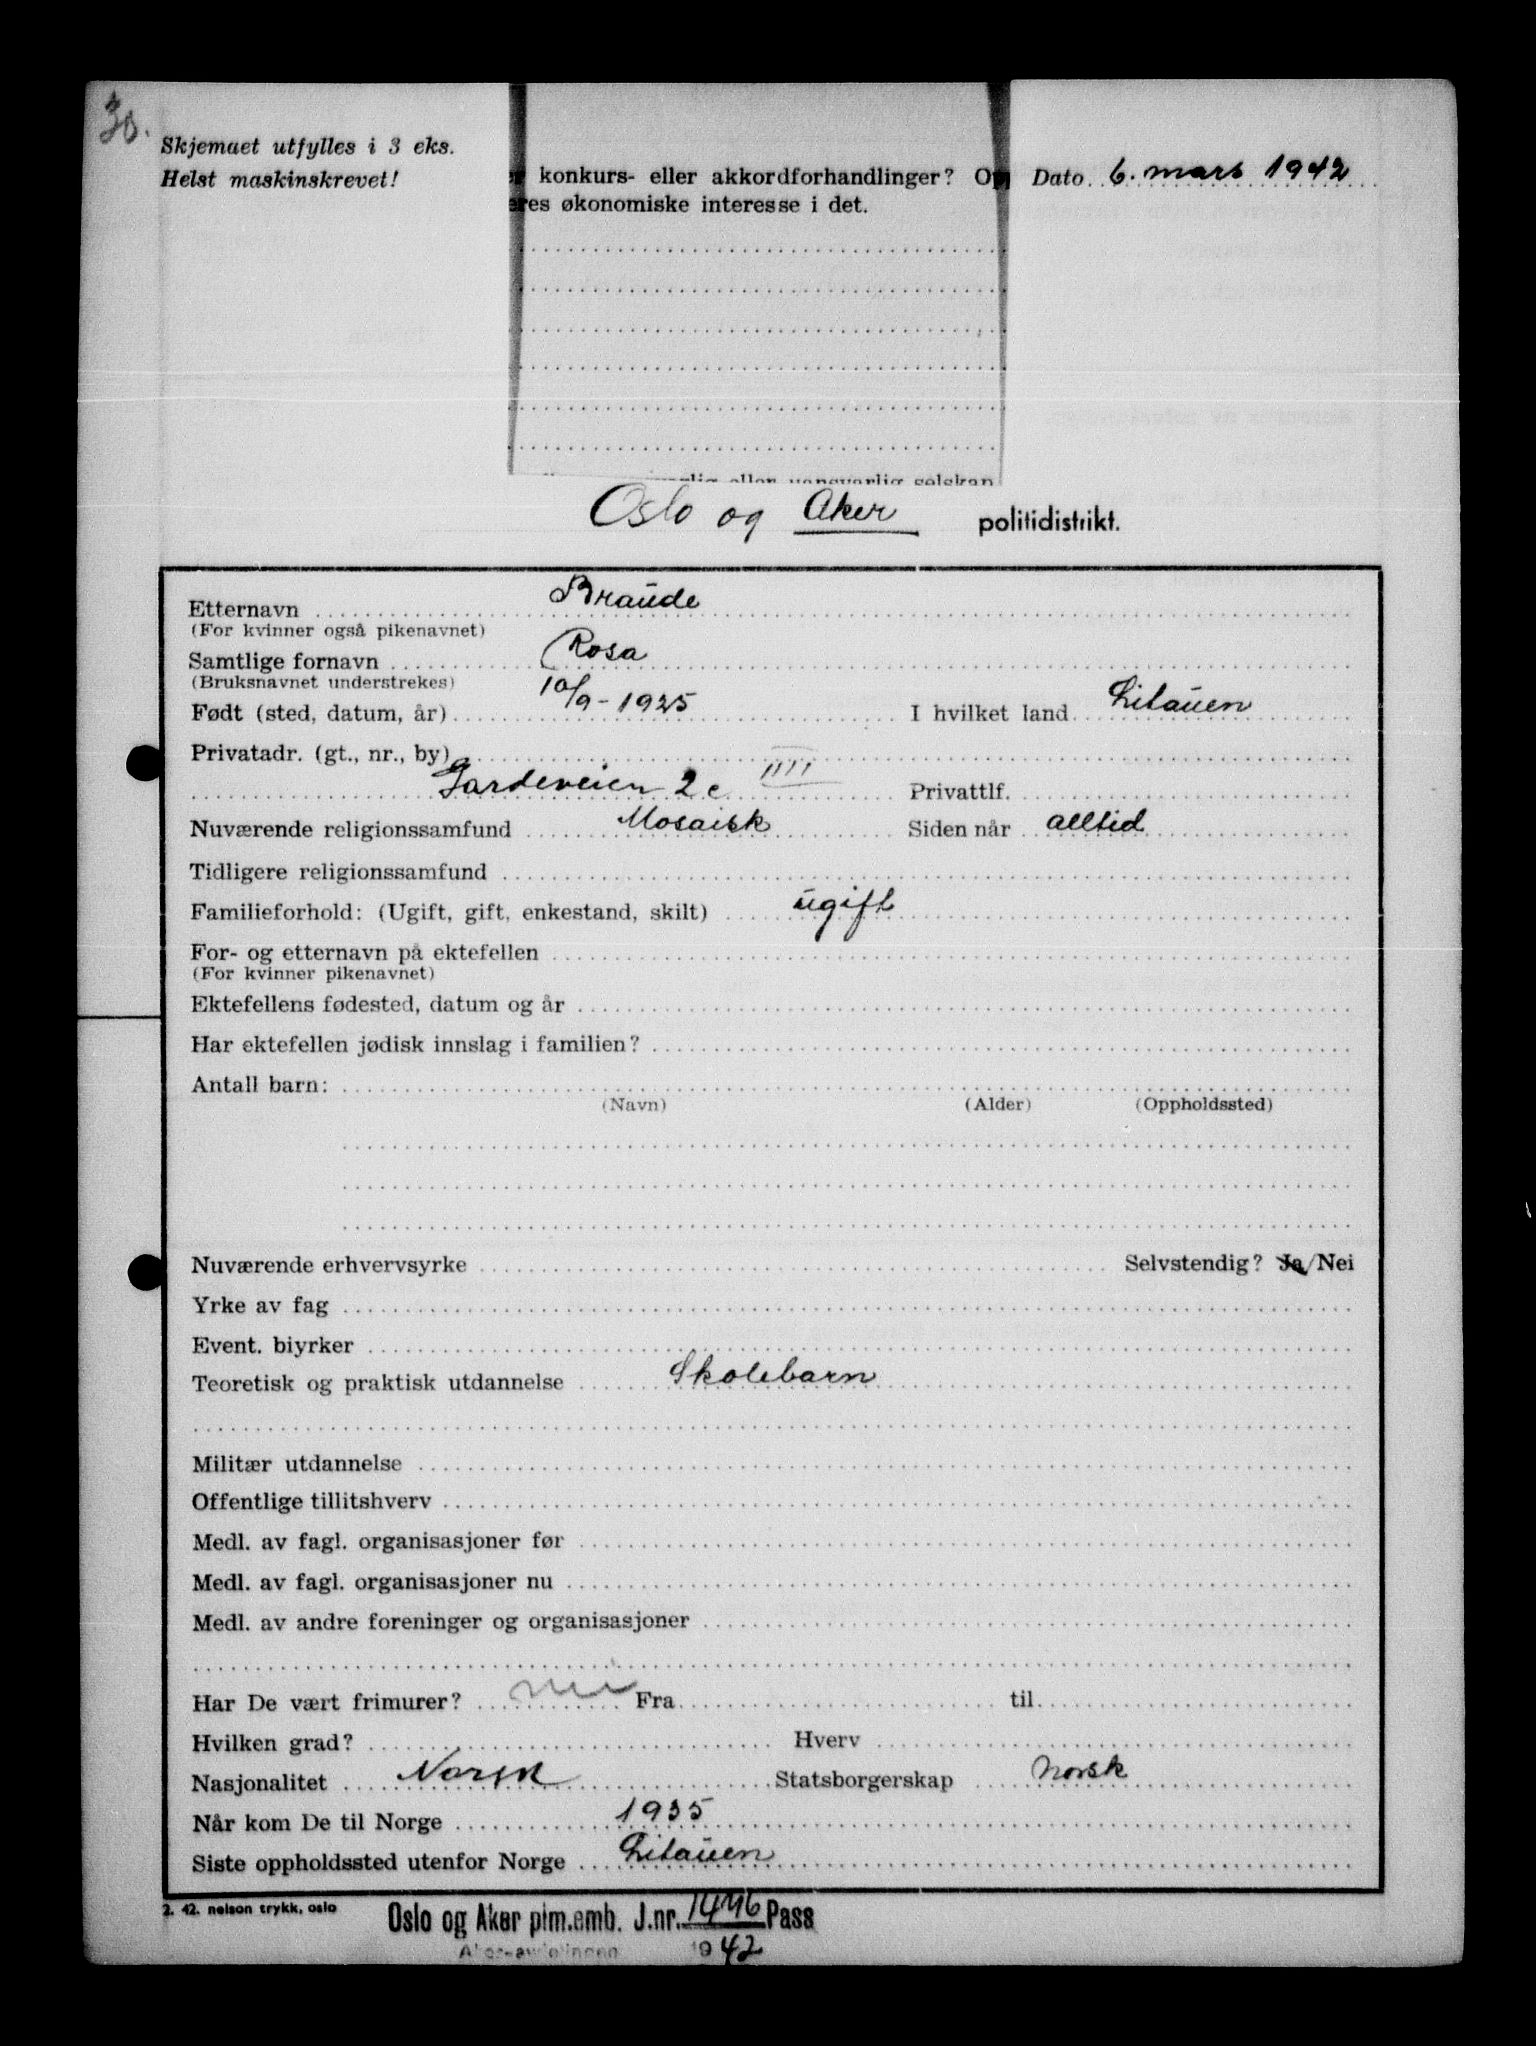 30.
Skjemaet utfylles i 3 eks.
Helst maskinskrevet!
konkurs- eller akkordforhandlinger?
Dato 6. mars 1942
økonomiske interesse i det.
Oslo og Aker politidistrikt.
Etternavn Braude
(For kvinner også pikenavnet)
Samtlige fornavn Rosa
(Bruksnavnet understrekes)
Født (sted, datum, år) 10/9-1925 I hvilket land Litauen
Privatadr. (gt., nr., by)
Gardeveien 2c Privattlf.
Nuværende religionssamfund Mosaisk Siden når alltid
Tidligere religionssamfund
Familieforhold: (Ugift, gift, enkestand, skilt) ugift
For- og etternavn på ektefellen
(For kvinner pikenavnet)
Ektefellens fødested, datum og år
Har ektefellen jødisk innslag i familien?
Antall barn:
(Navn) (Alder) (Oppholdssted)
Nuværende erhvervsyrke Selvstendig? Ja/Nei
Yrke av fag
Event. biyrker
Teoretisk og praktisk utdannelse Skolebarn
Militær utdannelse
Offentlige tillitshverv
Medl. av fagl. organisasjoner før
Medl. av fagl. organisasjoner nu
Medl. av andre foreninger og organisasjoner
Har De vært frimurer? nei Fra til
Hvilken grad? Hverv
Nasjonalitet Norsk Statsborgerskap Norsk
Når kom De til Norge 1935
Siste oppholdssted utenfor Norge Litauen
2. 42. nelson trykk, oslo
Oslo og Aker plm.emb. J.nr. 1446 Pass
1942